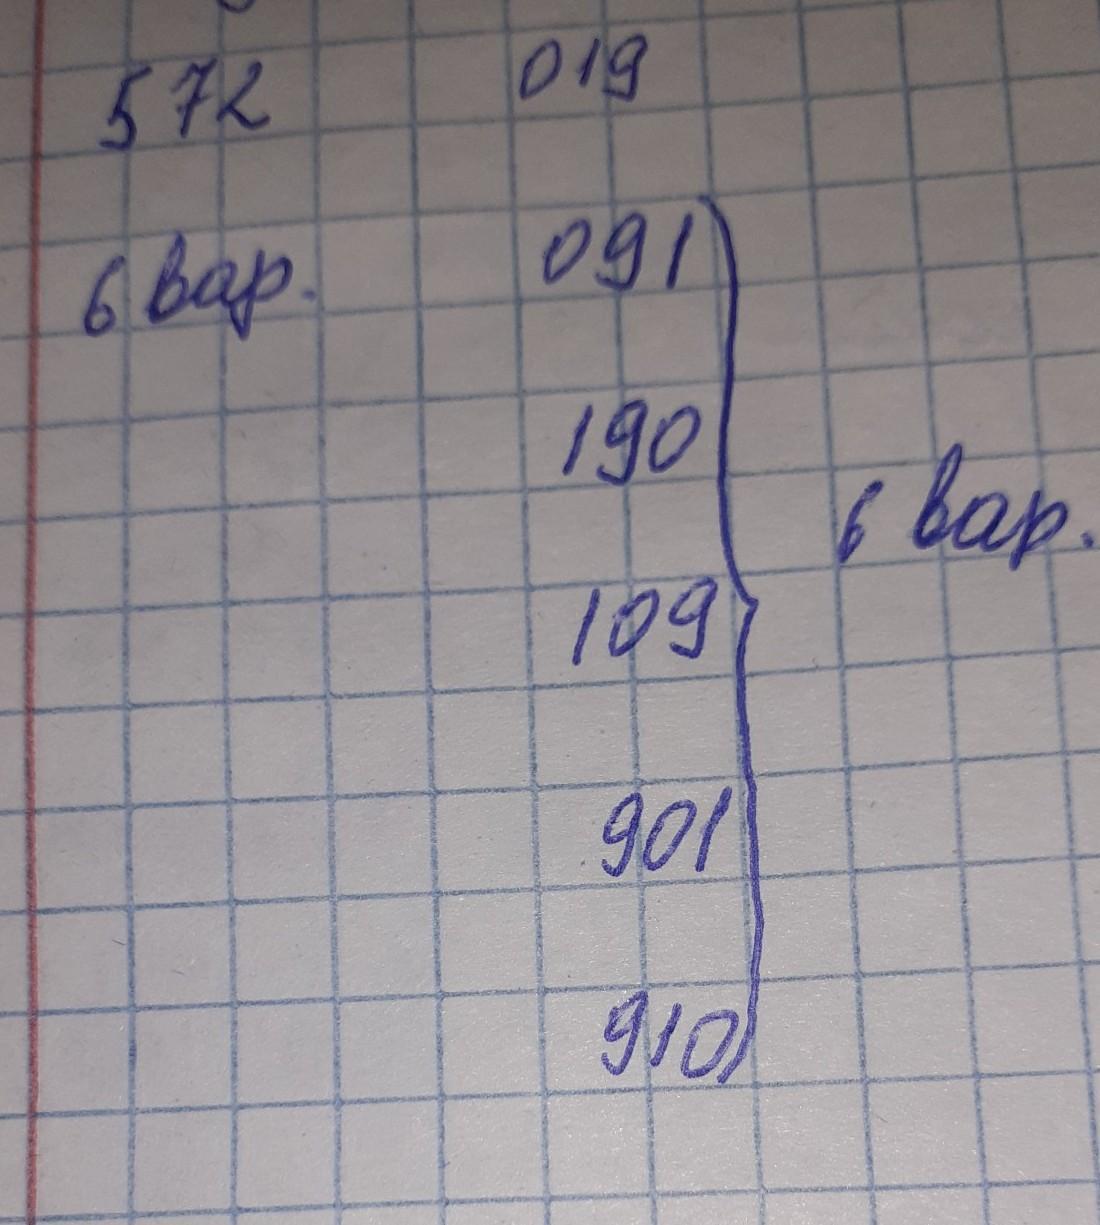 572 019
6 вар. 091
190
6 вар.
109
901
910